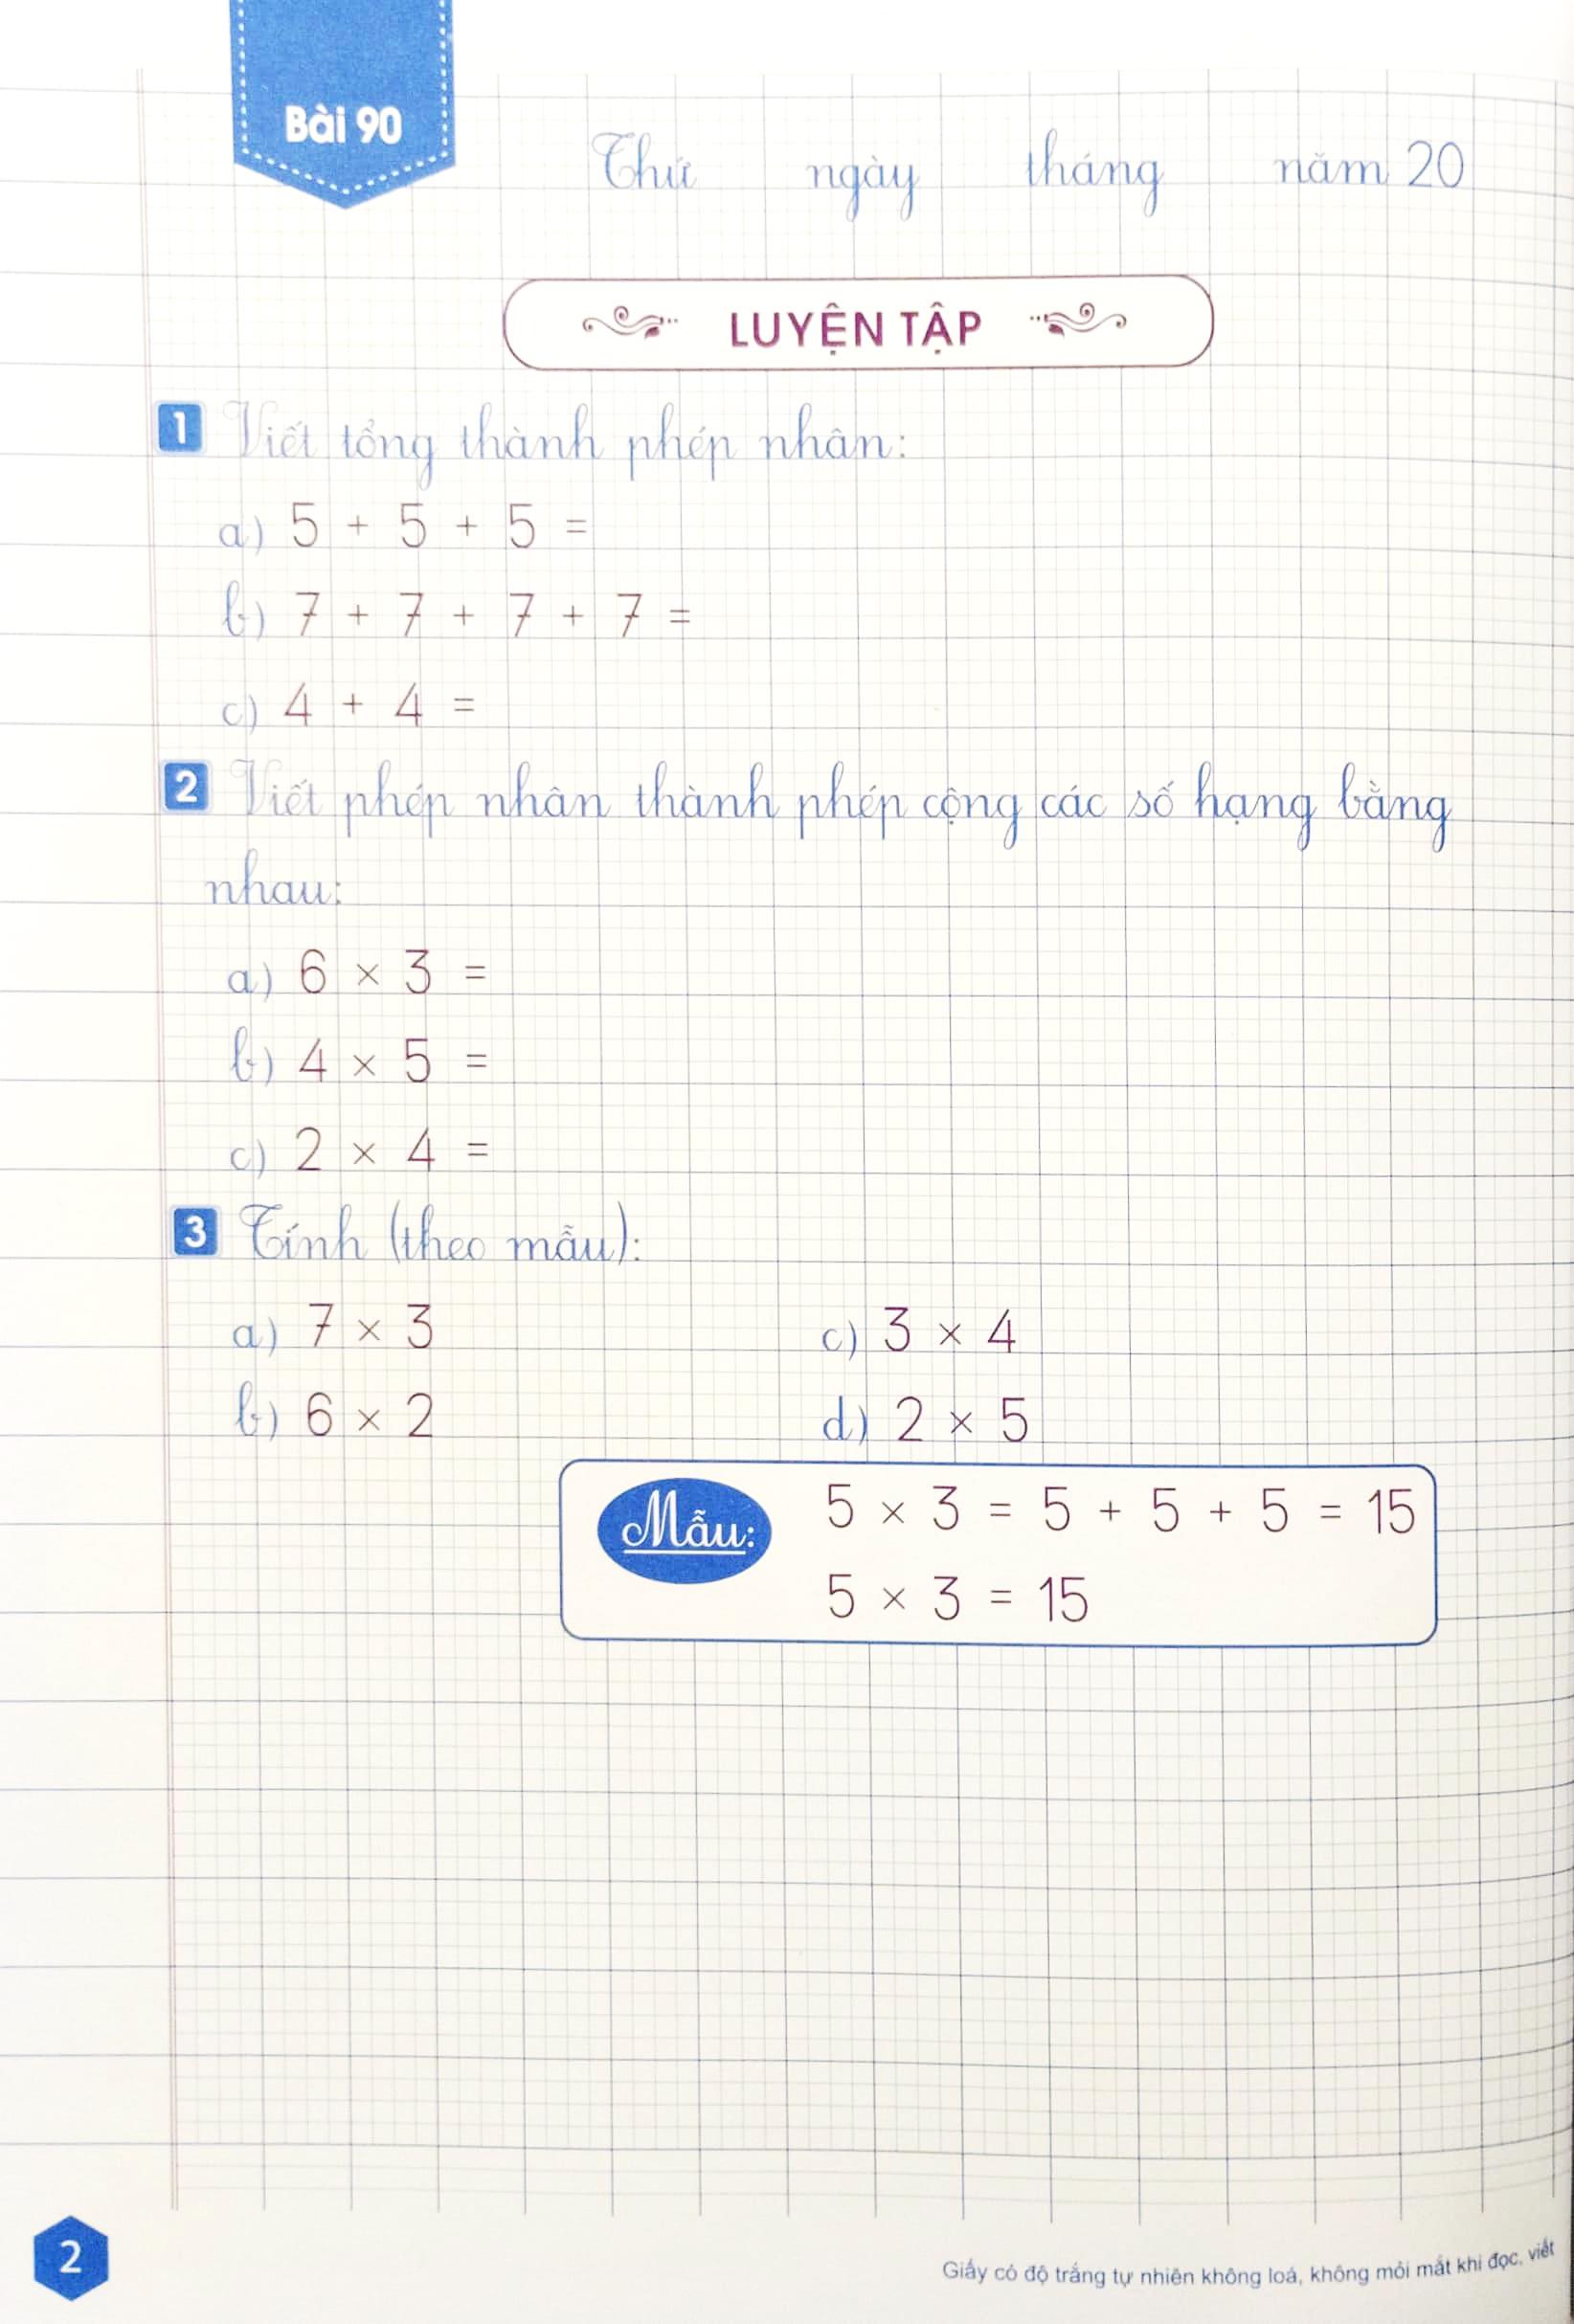 Bài 90
Thứ ngày tháng năm 20
LUYỆN TẬP
1 Viết tổng thành phép nhân:
a) 5 + 5 + 5 =
b) 7 + 7 + 7 + 7 =
c) 4 + 4 =
2 Viết phép nhân thành phép cộng các số hạng bằng
nhau:
a) 6 × 3 =
b) 4 × 5 =
c) 2 × 4 =
3 Tính (theo mẫu):
a) 7 × 3 c) 3 × 4
b) 6 × 2 d) 2 × 5
Mẫu: 5 × 3 = 5 + 5 + 5 = 15
5 × 3 = 15
2
Giấy có độ trắng tự nhiên không loá, không mỏi mắt khi đọc, viết